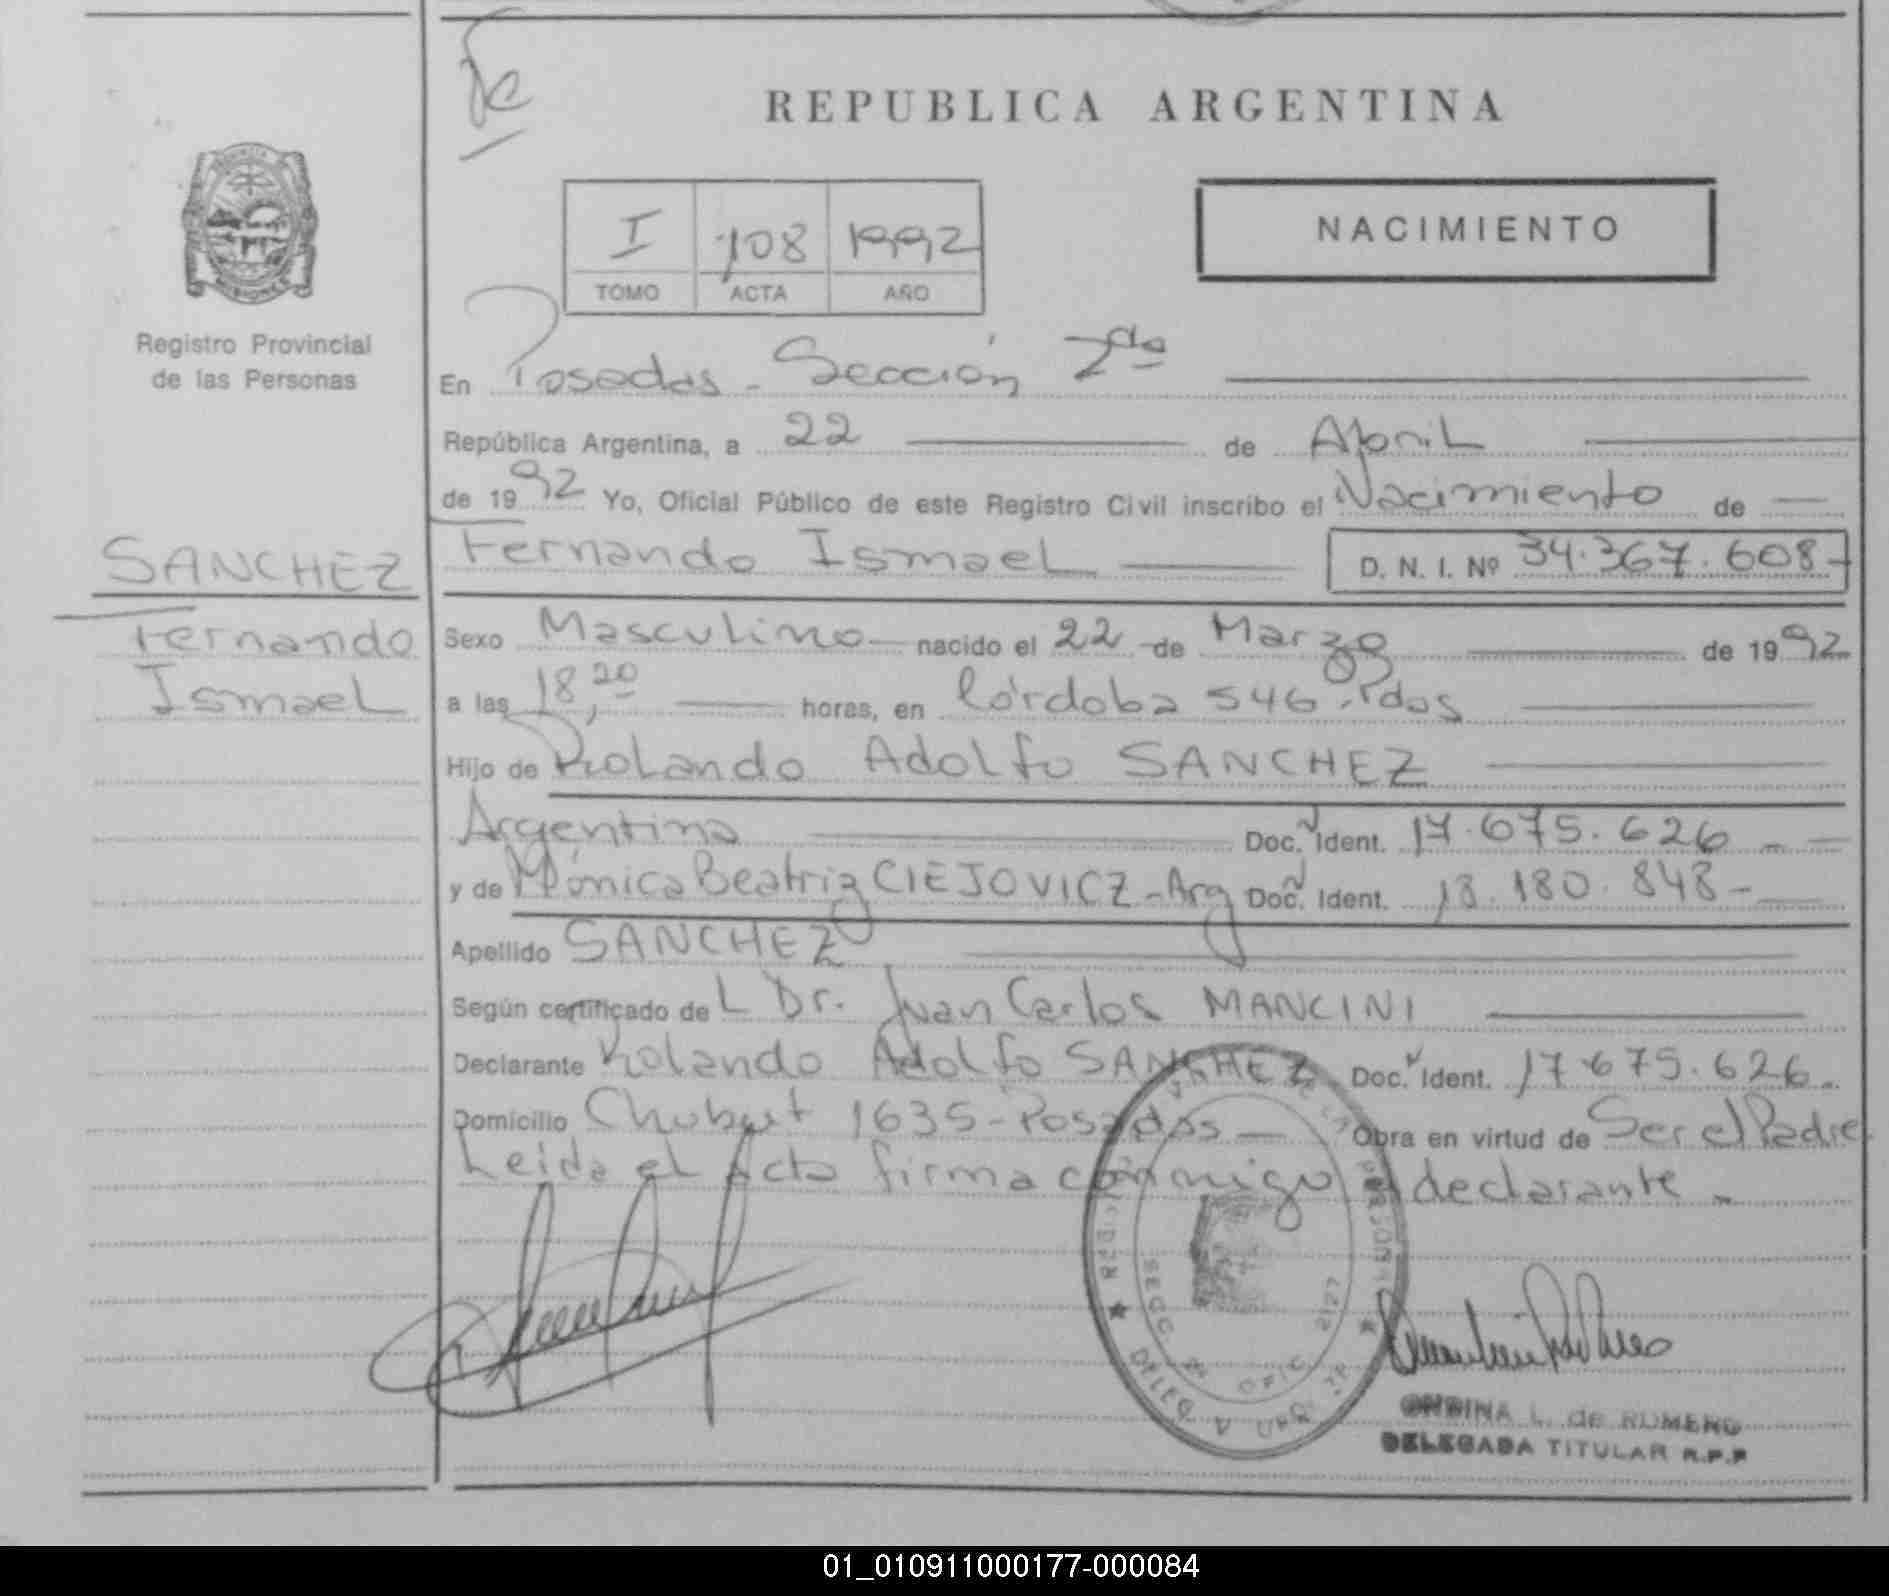 REPUBLICA ARGENTINA
PROVINCIA
MISIONES
Registro Provincial
de las Personas
I 108 1992
TOMO ACTA AÑO
NACIMIENTO
En Posadas - Sección 2da
República Argentina, a 22 de Abril
de 1992 Yo, Oficial Público de este Registro Civil inscribo el Nacimiento de
SANCHEZ
Fernando
Ismael
Fernando Ismael D. N. I. Nº 34.367.608-
Sexo Masculino nacido el 22 de Marzo de 1992
a las 18,20 horas, en Córdoba 546 - Pdas
Hijo de Rolando Adolfo SANCHEZ
Argentino Doc. Ident. 17.675.626 -
y de Mónica Beatriz CIEJOVICZ - Arg Doc. Ident. 18.180.848-
Apellido SANCHEZ
Según certificado de L Dr. Juan Carlos MANCINI
Declarante Rolando Adolfo SANCHEZ Doc. Ident. 17.675.626.
Domicilio Chubut 1635 - Posadas Obra en virtud de Ser el Padre
Leída el acta firma conmigo el declarante -
SECC. 2a OFIC. 2127
ONDINA L. de ROMERO
DELEGADA TITULAR R.P.P
01_010911000177-000084